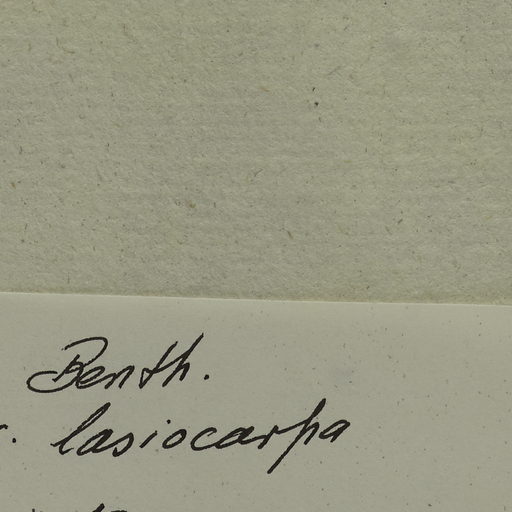 Benth.
r. lasiocarpa